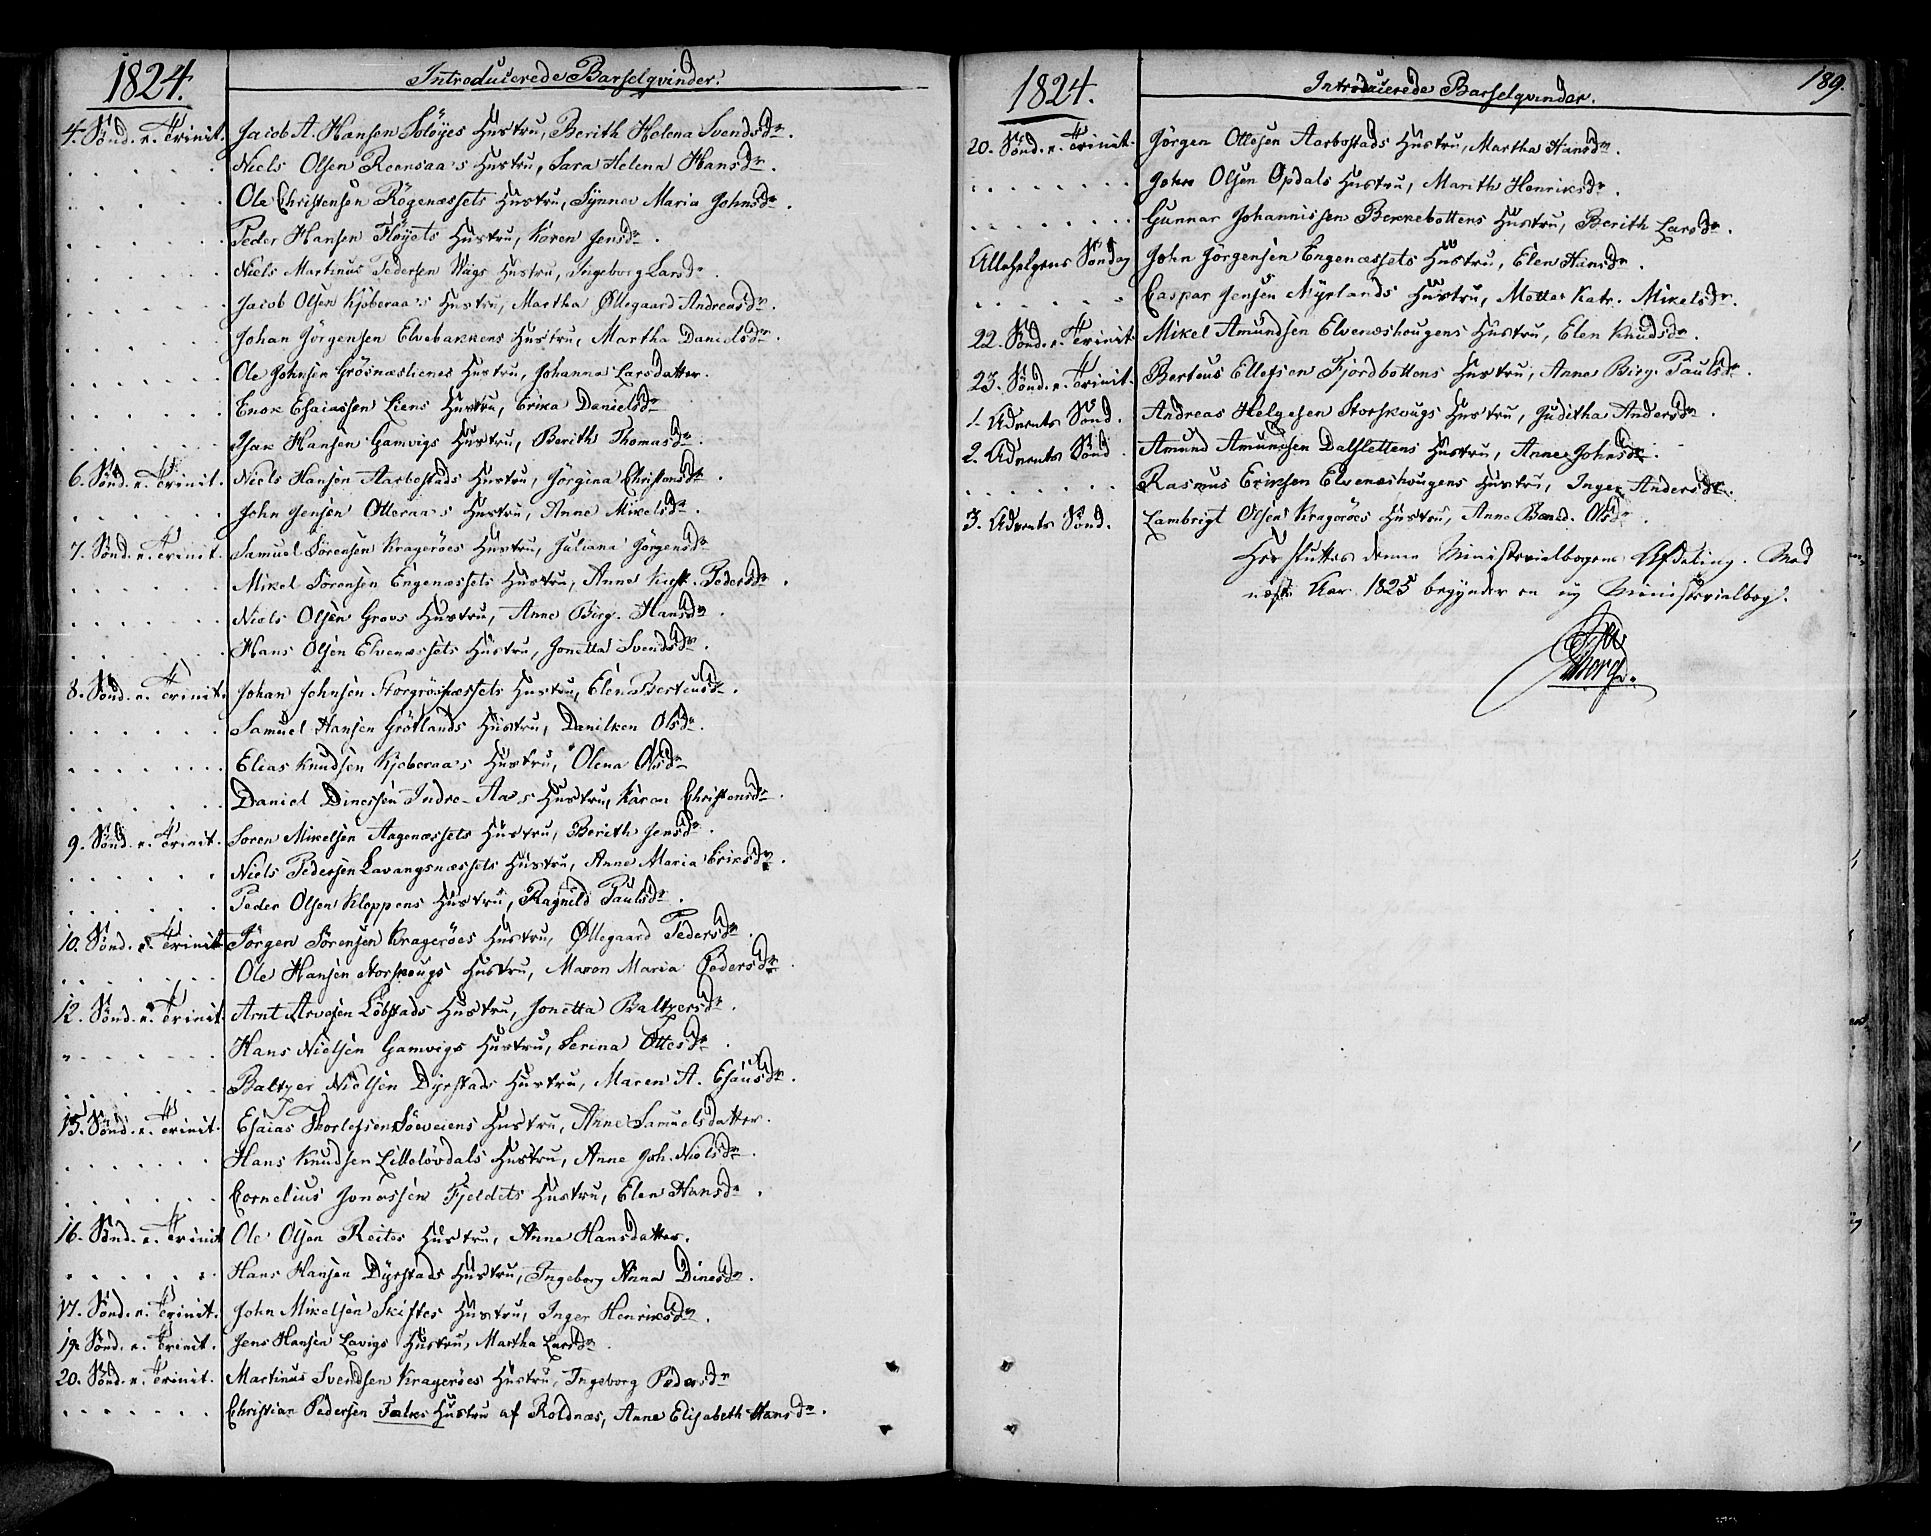 1824.
Introducerede Barselqvinder.
4. Sønd. e. Trinit. Jacob A. Hansen Soløyes Hustru, Berith Helena Svendsdr.
Niels Olsen Reensaa's Hustru, Sara Helena Hansdr.
Ole Christensen Rögenæssets Hustru, Synnev Maria Johnsdr.
Peder Hansen Fløyets Hustru, Karen Jensdr.
Niels Martinus Pedersen Vägs Hustru, Ingeborg Larsdr.
Jacob Olsen Kjöberaa's Hustru, Martha Øllegaard Andreasdr.
Johan Jörgensen Elvebakkens Hustru, Martha Danielsdr.
Ole Johnsen Grösnæslienes Hustru, Johanna Larsdatter.
Enok Esaiassen Liens Hustru, Erika Danielsdr.
Isak Hansen Gamvigs Hustru, Berith Thomasdr.
6. Sønd. e. Trinit. Niels Hansen Aarbostads Hustru, Jörgina Christensdr.
John Jensen Otteraa's Hustru, Anne Mikelsdr.
7. Sønd. e. Trinit. Samuel Sörensen Kragerøes Hustru, Juliana Jörgensdr.
Mikel Sörensen Engenæssets Hustru, Anne Kirst. Pedersdr.
Niels Olsen Grovs Hustru, Anne Birg. Hansdr.
Hans Olsen Elvenæssets Hustru, Jonetta Svendsdr.
8. Sønd. e. Trinit. Johan Johnsen Storgrösnæssets Hustru, Elen Berteusdr.
Samuel Hansen Grötlands Hustru, Danilken Olsdr.
Elias Knudsen Kjöberaa's Hustru, Olena Olsdr.
Daniel Dinessen Indre-Aa's Hustru, Karen Christensdr.
9. Sønd. e. Trinit. Søren Mikelsen Aagenæssets Hustru, Berith Jensdr.
Niels Pedersen Lavangsnæssets Hustru, Anne Maria Eriksdr.
Peder Olsen Kloppens Hustru, Ragnild Paulsdr.
10. Sønd. e. Trinit. Jörgen Sörensen Kragerøes Hustru, Øllegaard Pedersdr.
Ole Hansen Storskougs Hustru, Maren Maria Pedersdr.
12. Sønd. e. Trinit. Arnt Arvesen Löbstads Hustru, Jonetta Baltzersdr.
Hans Nielsen Gamvigs Hustru, Serina Ottesdr.
Baltzer Nielsen Dyrstads Hustru, Maren A. Esausdr.
15. Sønd. e. Trinit. Esaias Thorlefsen Söeveiens Hustru, Anne Samuelsdatter.
Hans Knudsen Lillelövdals Hustru, Anne Joh. Nielsdr.
Cornelius Jonassen Fjeldets Hustru, Elen Hansdr.
16. Sønd. e. Trinit. Ole Olsen Reites Hustru, Anne Hansdatter.
Hans Hansen Dyrstads Hustru, Ingeborg Anna Dinesdr.
17. Sønd. e. Trinit. John Mikelsen Skiftes Hustru, Inger Henriksdr.
19. Sønd. e. Trinit. Jens Hansen Lavigs Hustru, Martha Larsdr.
20. Sønd. e. Trinit. Martinus Svendsen Kragerøes Hustru, Ingeborg Pedersdr.
Christian Pedersen Falks Hustru af Roldnæs, Anne Elisabeth Hansdr.
1824.
Introducerede Barselqvinder.
189.
20. Sønd. e. Trinit. Jörgen Ottesen Aarbostads Hustru, Martha Hansdr.
John Olsen Opdals Hustru, Marith Henriksdr.
Gunnar Johannissen Berkebottens Hustru, Berith Larsdr.
Allehelgens Søndag John Jörgensen Engenæssets Hustru, Elen Hansdr.
Caspar Jensen Myrlands Hustru, Mette Katr. Mikelsdr.
22. Sønd. e. Trinit. Mikel Amundsen Elvenæshougens Hustru, Elen Knudsdr.
23. Sønd. e. Trinit. Berteus Ellefsen Fjordbottens Hustru, Anne Birg. Paulsdr.
1. Advents Sønd. Andreas Helgesen Storskougs Hustru, Juditha Andersdr.
2. Advents Sønd. Amund Amundsen Dalslettens Hustru, Anne Johnsdr.
Rasmus Eriksen Elvenæshougens Hustru, Inger Andersdr.
3. Advents Sønd. Lambrigt Olsen Kragerøes Hustru, Anne Bend. Olsdr.
Her sluttes denne Ministerialbogens Afdeling. Med
næste Aar 1825 begynder en ny Ministerialbog.